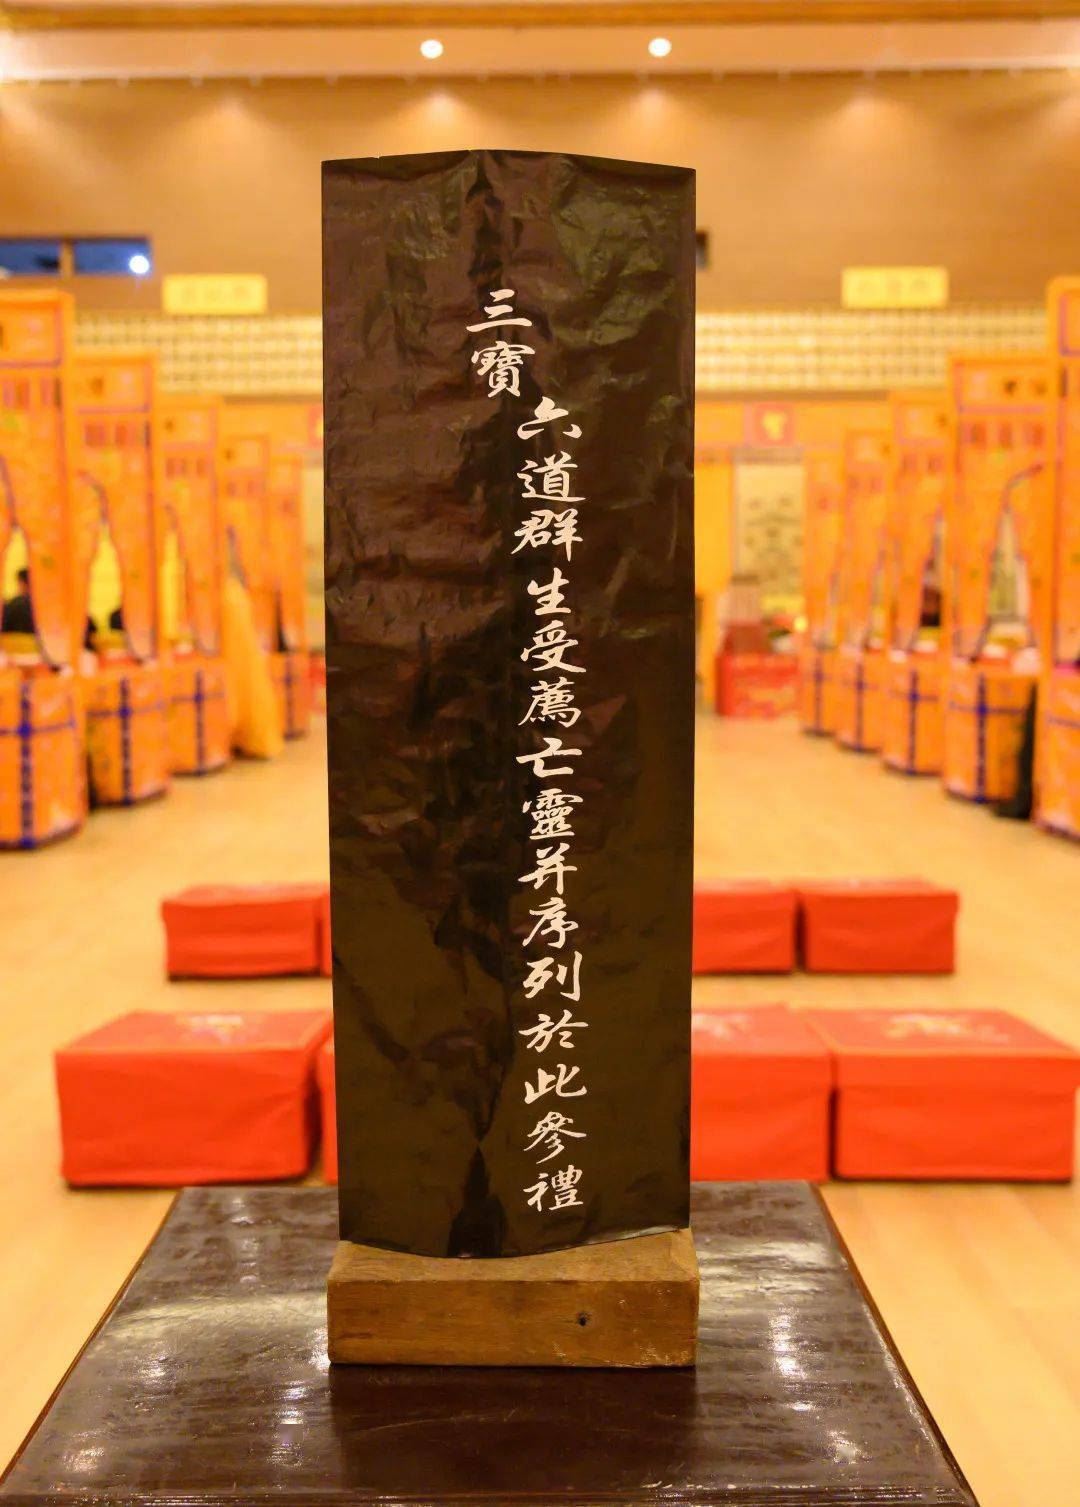 三寶
六道群生受薦亡靈并序列於此參禮